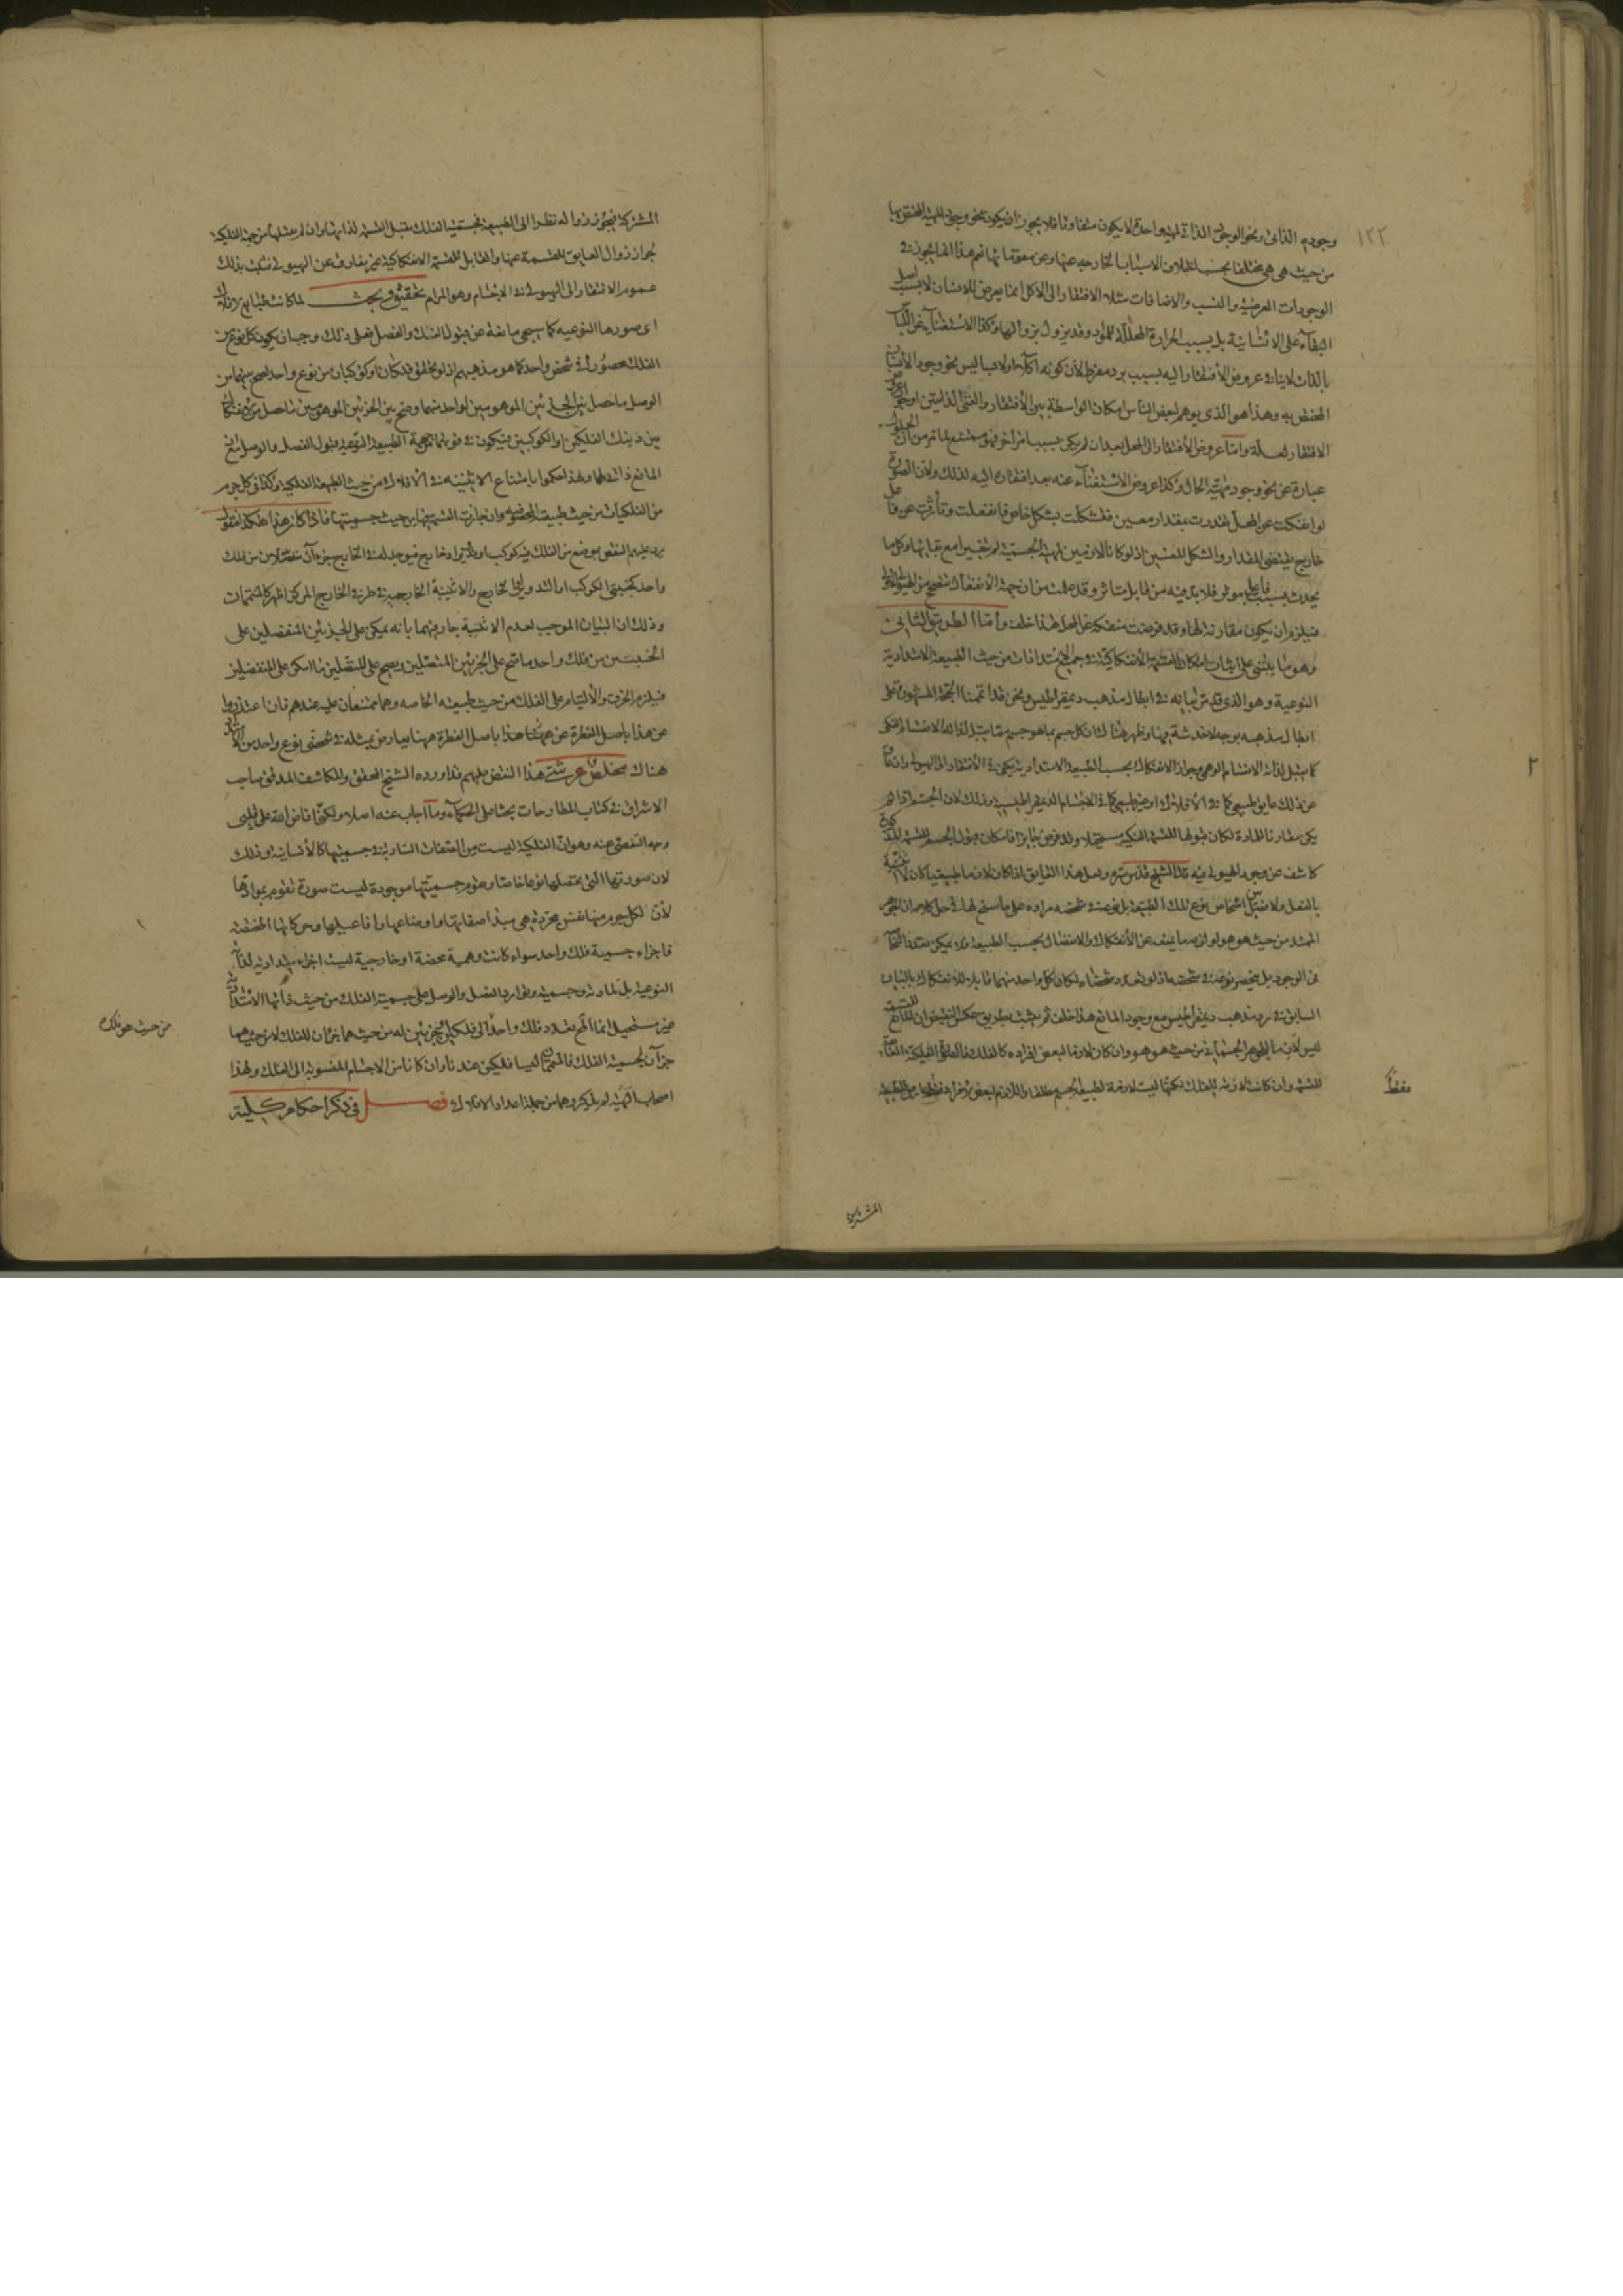 ١٢٢
وجوده الذاتي ونحو الوجود الذاتي لمهية واحدة لا يكون متفاوتا فلا يجوز ان يكون نحو وجود المهية المختص بها
من حيث هي هي مختلفا بحسب اختلاف الاسباب الخارجية عنها وعن مقوماتها نعم هذا انما يجوز في
الوجودات العرضية والنسب والاضافات مثلا الافتقار الى الاكل انما يعرض للانسان لا بسبب اصل
البقاء على الانسانية بل بسبب الحرارة المحللة للمواد وقد يزول بزوالها وكذا الاستغناء عن اللباس
بالذات لا ينافي عروض الافتقار اليه بسبب برد مفرط لان كونه آكلا ولابسا ليس نحو وجود الانسان
المختص به وهذا هو الذي يوهم لبعض الناس امكان الواسطة بين الافتقار والغنى الذاتيين
الافتقار لعلة واما عروض الافتقار الى المحل بعد ان لم يكن بسبب امر آخر فهو ممتنع لما مر من ان الحلول
عبارة عن نحو وجود مهية الحال وكذا عروض الاستغناء عنه بعد افتقاره اليه لذلك ولان الصورة
لو انفكت عن المحل تقدرت بمقدار معين فتشكلت بشكل خاص فانفعلت وتأثرت عن فاعل
خارج يقتضي المقدار والشكل المعينين اذ لو كانا لازمين لمهية الجسمية لم يتغيرا مع بقائها وكل ما
يحدث بسبب فاعل مؤثر فلا بد فيه من قابل متأثر وقد علمت من ان جهة الانفعال
فيلزم ان يكون مقارنة لها وقد فرضت منفكة عن المحل هذا خلف واما الطريق الثاني
وهو ما يبتني على اثبات امكان القسمة الانفكاكية في جميع الامتدادات من حيث الطبيعة الامتدادية
النوعية وهو الذي قد مر بيانه في ابطال مذهب ديمقراطيس ونحن قد اتممنا الحجة المشهورة على
ابطال مذهبه بوجه لا خدشة فيها وظهر هناك ان كل جسم بما هو جسم مما يقبل لذاته الانقسام الفكي
كما يقبل لذاته الانقسام الوهمي وجواز الانفكاك بحسب الطبيعة الامتدادية يكفي في الافتقار الى الهيولى وان عاق
عن ذلك عايق طبيعي كما في الافلاك او غير طبيعي كما في الاجسام الديمقراطيسية وذلك لان الجسم اذا لم
يكن مقارنا للمادة لكان قبولها للقسمة الفكية مستحيلا وقد فرض جايزا فامكان قبول الجسم للقسمة المذكورة
كاشف عن وجود الهيولى فيه قال الشيخ قدس سره ولعل هذا العايق اذا كان لازما طبيعيا كان لا اثنينية
بالفعل ولا فصل بين اشخاص نوع تلك الطبيعة بل نوعه في شخصه مراده على ما سنح لنا في حل كلامه ان الجوهر
الممتد من حيث هو هو لو لزمه ما يمنعه عن الانفكاك والانفصال بحسب الطبيعة فلا يمكن تعدد اشخاصه
في الوجود بل ينحصر نوعه في شخصه اذ لو تعدد شخصاه لكان كل واحد منهما قابلا للانفكاك بالبيان
السابق في رد مذهب ديمقراطيس مع وجود المانع هذا خلف ثم يثبت بطريق عكس النقيض ان المانع للقسمة
ليس لازما للجوهر الجسماني من حيث هو هو وان كان لازما لبعض افراده كالفلك فالصورة الفلكية
للقسمة وان كانت لازمة للفلك لكنها ليست لازمة لطبيعة الجسم مطلقا واللازم لبعض افراد
فقط
٢
المشتركة
المشتركة فيجوز زواله نظرا الى الطبيعة فجسمية الفلك يقبل القسمة لذاتها وان لم يقبلها من جهة الفلكية
لجواز زوال العايق للقسمة عنها والقابل للقسمة الانفكاكية غير مفارق عن الهيولى فثبت بذلك
عموم الافتقار الى الهيولى في الاجسام وهو المرام تحقيق وبحث لما كانت طبايع الافلاك
اي صورها النوعية كما سيجيء مانعة عن قبول الفك والفصل فعلى ذلك وجب ان يكون كل نوع من
الفلك محصورا في شخص واحد كما هو مذهبهم اذ لو تحقق فلكان او كوكبان من نوع واحد لصح بينهما من
الوصل ما حصل بين الجزئين الموهومين لواحد منهما وصح بين الجزئين الموهومين ما حصل
بين ذينك الفلكين او الكوكبين فيكون في قوتهما من جهة الطبيعة النوعية قبول الفصل والوصل مع ان
المانع ذاتي لها ولهذا حكموا بامتناع الاثنينية في الافلاك من حيث الطبيعة الفلكية وكذا في كل جرم
من الفلكيات من حيث طبيعته المخصوصة وان جازت القسمة فيها من حيث جسميتها فاذا كان هذا هكذا فنقول
يرد عليهم النقض بموضع من الفلك فيه كوكب او تدوير او خارج فيوجد له في الخارج جزءان منفصلان من فلك
واحد كجنبتي الكوكب او التدوير الى الخارج والاثنينية الخارجية في طرفي الخارج المركز اظهر كالمتممات
وذلك ان البيان الموجب لعدم الاثنينية جار فيهما بانه يمكن على الجزئين المنفصلين على
الجنبتين من فلك واحد ما صح على الجزئين المتصلين ويصح على المتصلين ما امكن على المنفصلين
فيلزم الخرق والالتيام على الفلك من حيث طبيعته الخاصة وهما ممتنعان عليه عندهم فان اعتذروا
عن هذا باصل الفطرة عن هذا باصل الفطرة ههنا يعارض بمثله في شخصي نوع واحد من الافلاك
هناك مخلص عرشي هذا النقض عليهم قد اورده الشيخ المحقق والمكاشف المدقق صاحب
الاشراق في كتاب المطارحات بحثا على الحكماء وما اجاب عنه اصلا ولكني افاض الله على قلبي
وجه التفصي عنه وهو ان الفلكية ليست من الصفات السارية في جسميتها كالانسانية وذلك
لان صورتها التي تحصلها نوعا خاصا وتقوم جسميتها موجودة ليست صورة تقوم بموادها
لان لكل جرم منها نفس مجردة هي مبدأ صفاتها واوضاعها وافاعيلها وحركاتها المختصة
فاجزاء جسمية فلك واحد سواء كانت وهمية محضة او خارجية ليست اجزاء مقدارية لذاته
النوعية بل لمادته وجسميته وتوارد الفصل والوصل على جسمية الفلك من حيث ذاتها الامتدادية
غير مستحيل انما المحال تعدد فلك واحد الى فلكين لجزئين له من حيث هما جزءان للفلك لا من حيث هما
جزءان لجسمية الفلك فالمتممان ليسا فلكين عندنا وان كانا من الاجسام المنسوبة الى الفلك ولهذا
اصحاب الهيئة لم يذكروهما من جملة اعداد الافلاك فصل في ذكر احكام كلية
من حيث هو فلك